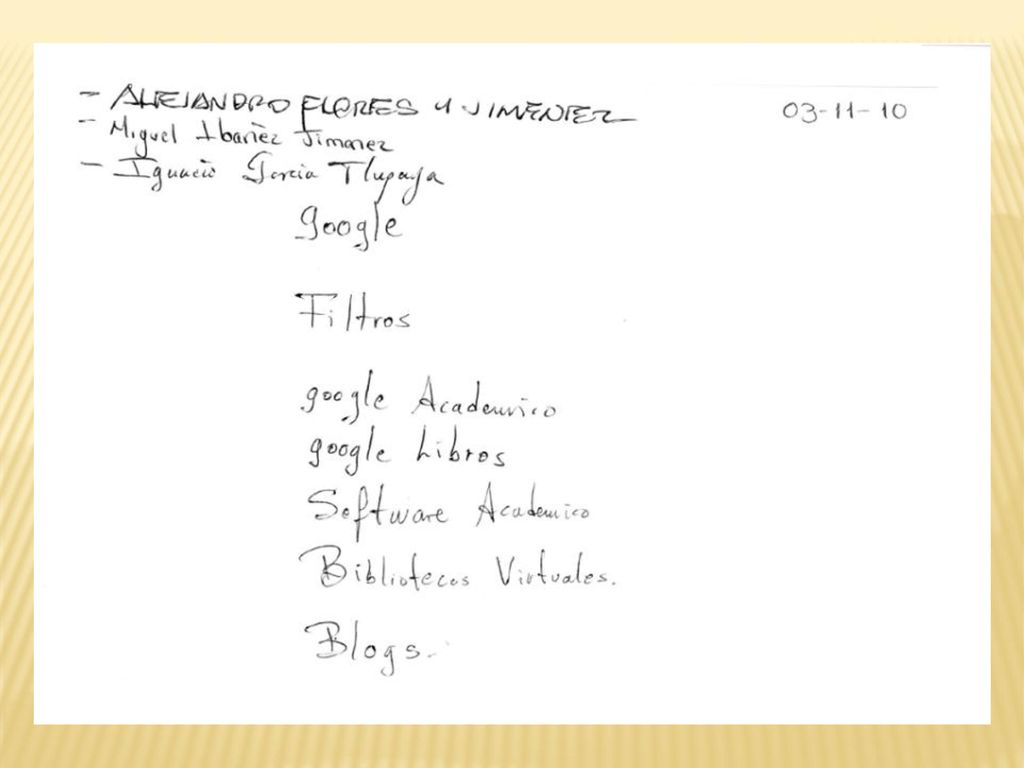 - ALEJANDRO FLORES Y JIMENEZ 03-11-10
- Miguel Ibañez Jimenez
- Ignacio Garcia Tlapaya
google
Filtros
google Academico
google Libros
Software Academico
Bibliotecas Virtuales.
Blogs.